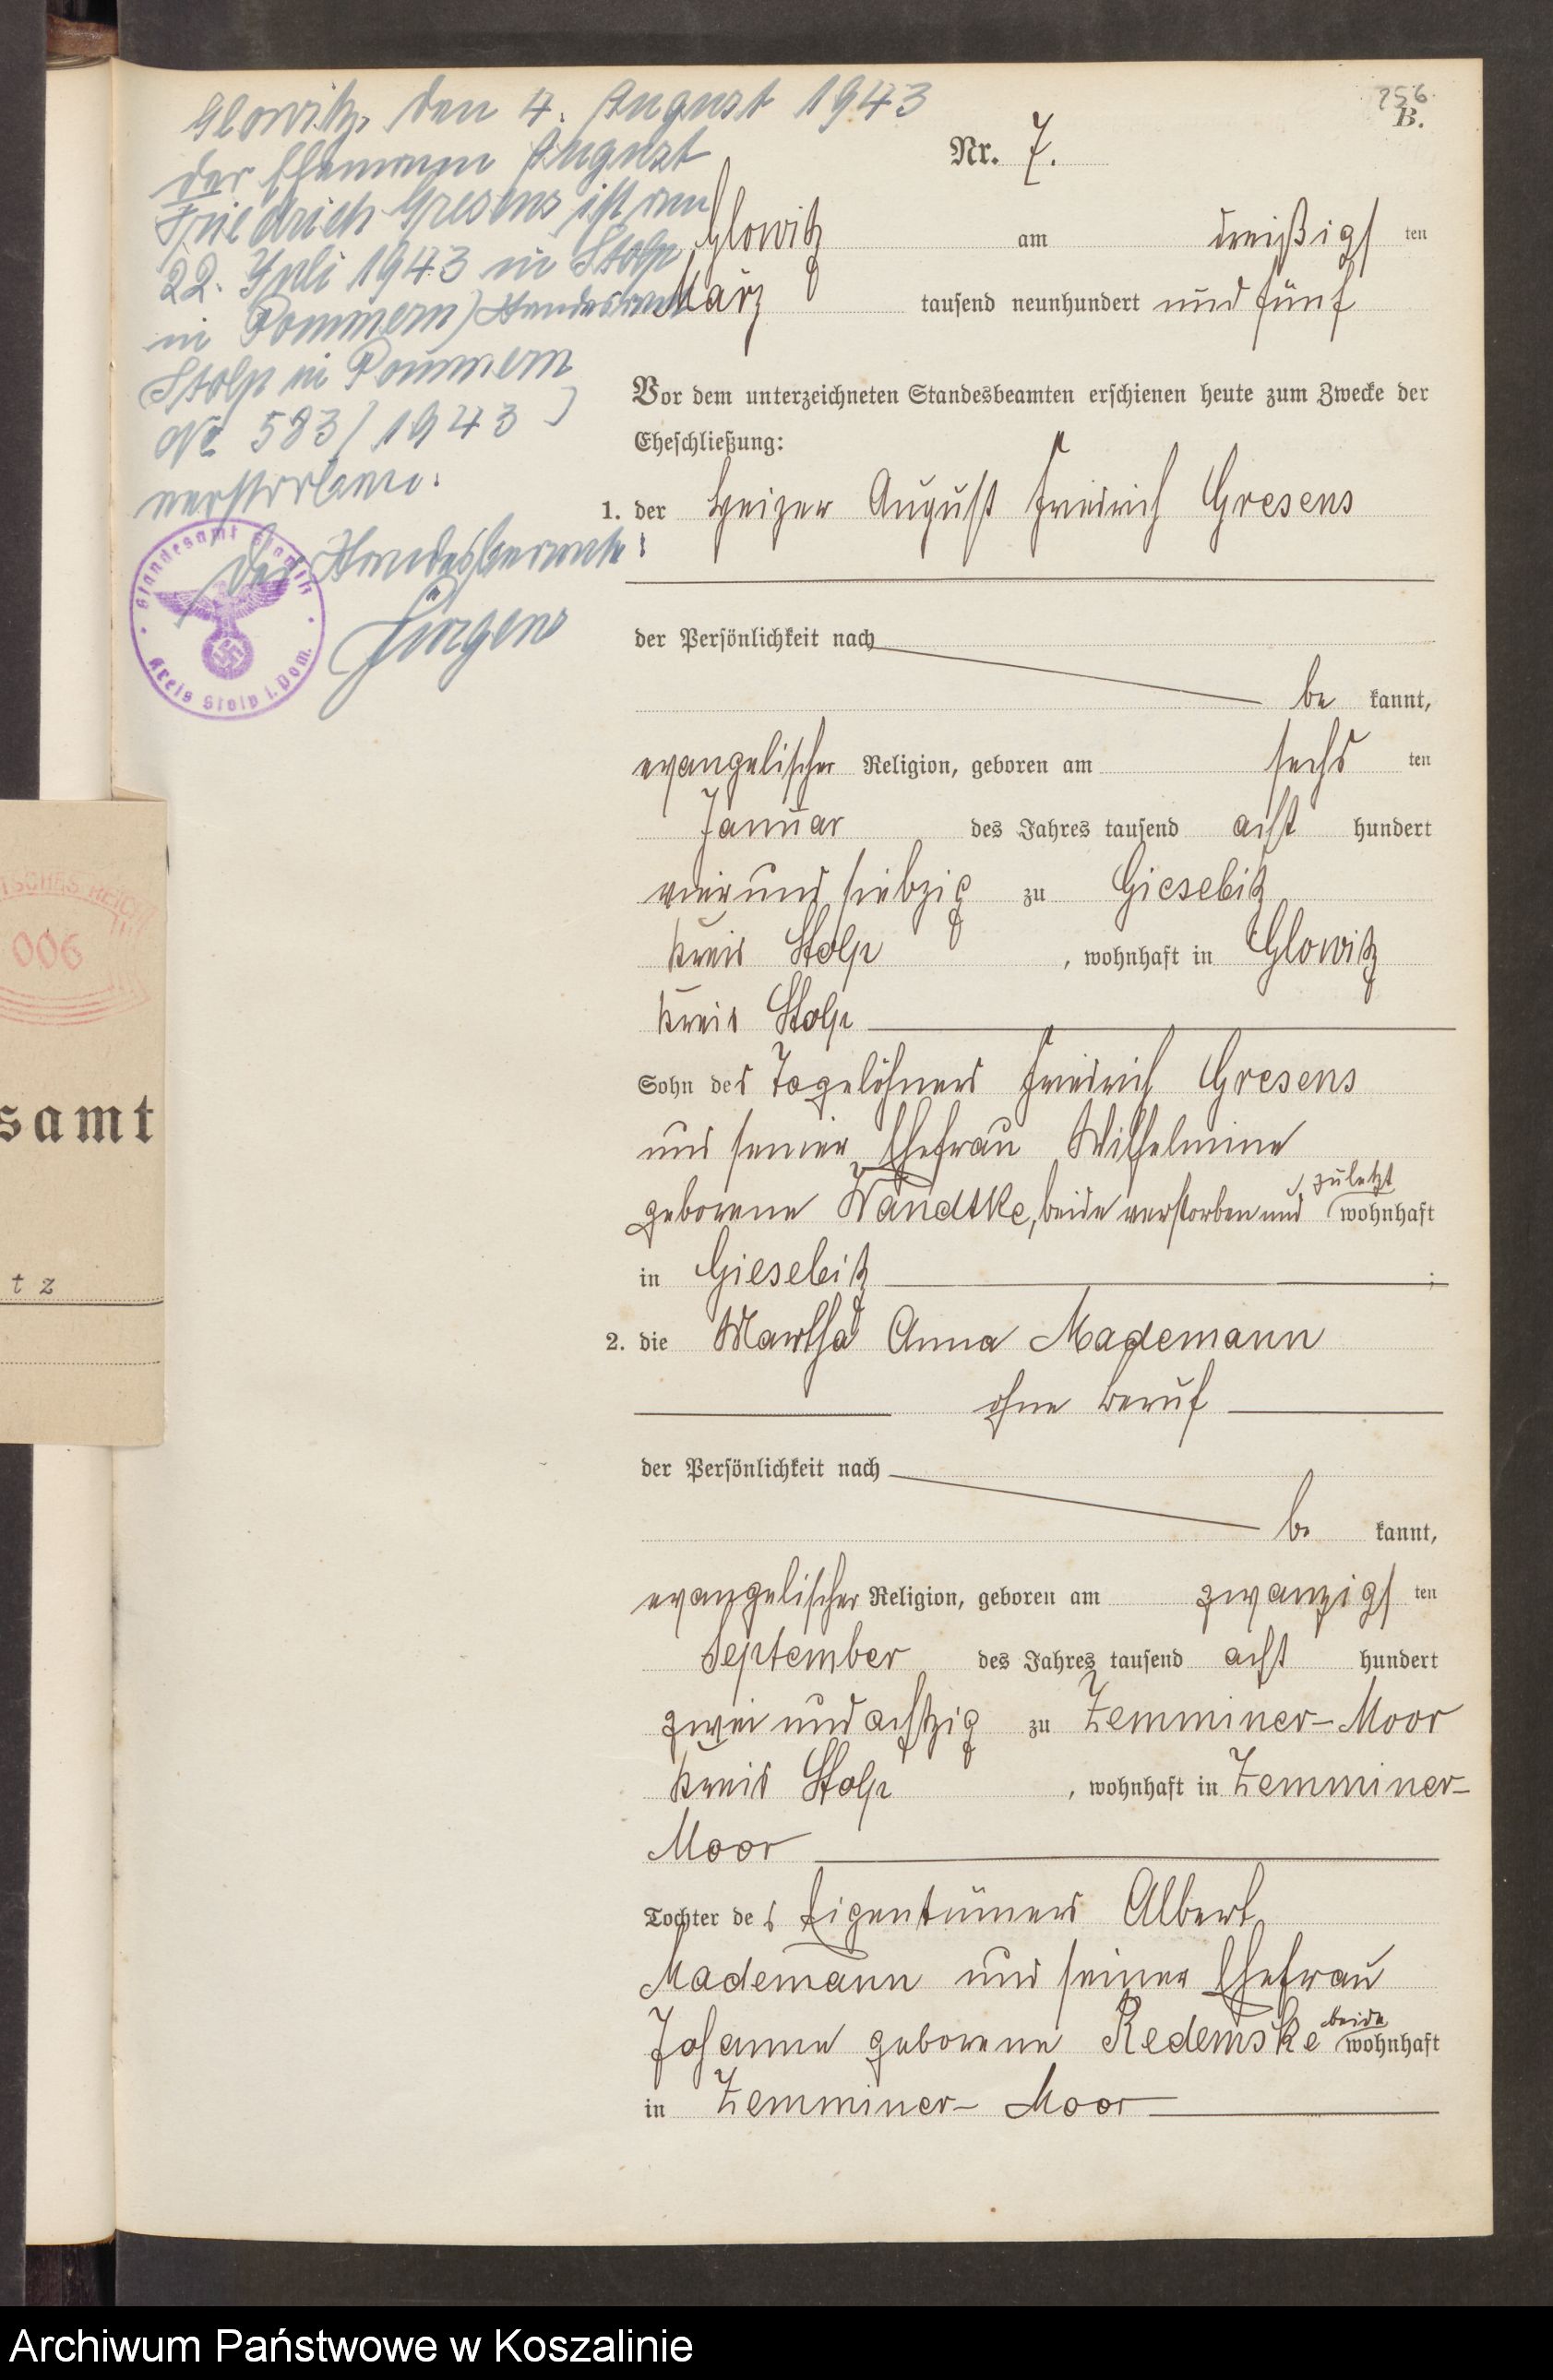 256.
B.
Nr. 7.
Glowitz, den 4. August 1943
der Ehemann August
Friedrich Gresens ist am
22. Juli 1943 in Stolp
in Pommern (Standesamt
Stolp in Pommern
Nr. 583/1943)
verstorben.
Der Standesbeamte
Jürgens
Standesamt Glowitz
Kreis Stolp i. Pom.
Glowitz am dreißigsten
März tausend neunhundert und fünf
Vor dem unterzeichneten Standesbeamten erschienen heute zum Zwecke der
Eheschließung:
1. der Heizer August Friedrich Gresens
der Persönlichkeit nach
be kannt,
evangelischer Religion, geboren am sechsten
Januar des Jahres tausend acht hundert
vier und siebzig zu Giesebitz
Kreis Stolp, wohnhaft in Glowitz
Kreis Stolp
Sohn des Tagelöhners Friedrich Gresens
und seiner Ehefrau Wilhelmine
geborene Wandtke, beide verstorben und zuletzt wohnhaft
in Giesebitz ;
2. die Martha Anna Mademann
ohne Beruf
der Persönlichkeit nach
be kannt,
evangelischer Religion, geboren am zwanzigsten
September des Jahres tausend acht hundert
zwei und achtzig zu Zemminer-Moor
Kreis Stolp, wohnhaft in Zemminer-
Moor
Tochter des Eigentümers Albert
Mademann und seiner Ehefrau
Johanne geborene Redemske beide wohnhaft
in Zemminer-Moor
006
samt
tz
Archiwum Państwowe w Koszalinie